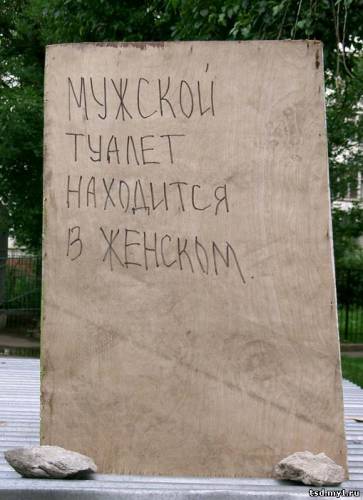 МУЖСКОЙ
ТУАЛЕТ
НАХОДИТСЯ
В ЖЕНСКОМ.
tsd.my1.ru